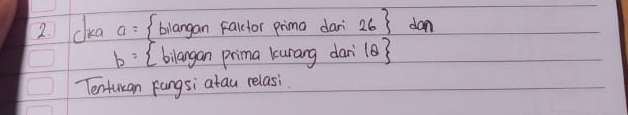 2. Jika a = {bilangan faktor prima dari 26} dan
b = {bilangan prima kurang dari 18}
Tentukan fungsi atau relasi.